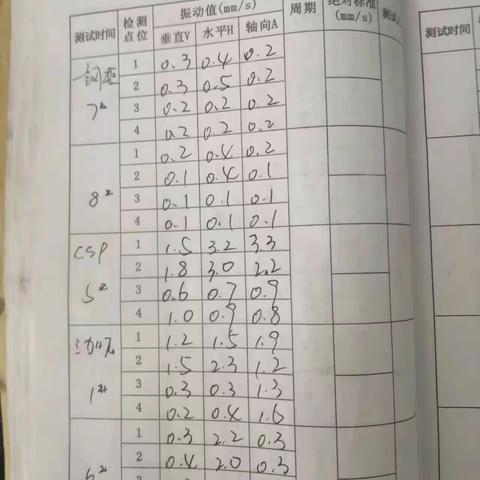 测试时间 检测点位 振动值(mm/s) 周期 绝对标准(mm/s) 测试 测试时间
垂直V 水平H 轴向A
1 0.3 0.4 0.2
2 0.3 0.5 0.2
7# 3 0.2 0.2 0.2
4 0.2 0.2 0.2
1 0.2 0.4 0.2
2 0.1 0.4 0.1
8# 3 0.1 0.1 0.1
4 0.1 0.1 0.1
CSP 1 1.5 3.2 3.3
2 1.8 3.0 2.2
5# 3 0.6 0.7 0.9
4 1.0 0.9 0.8
1 1.2 1.5 1.9
2 1.5 2.3 1.2
1# 3 0.3 0.3 1.3
4 0.2 0.4 1.6
1 0.3 2.2 0.3
6# 2 0.4 2.0 0.3